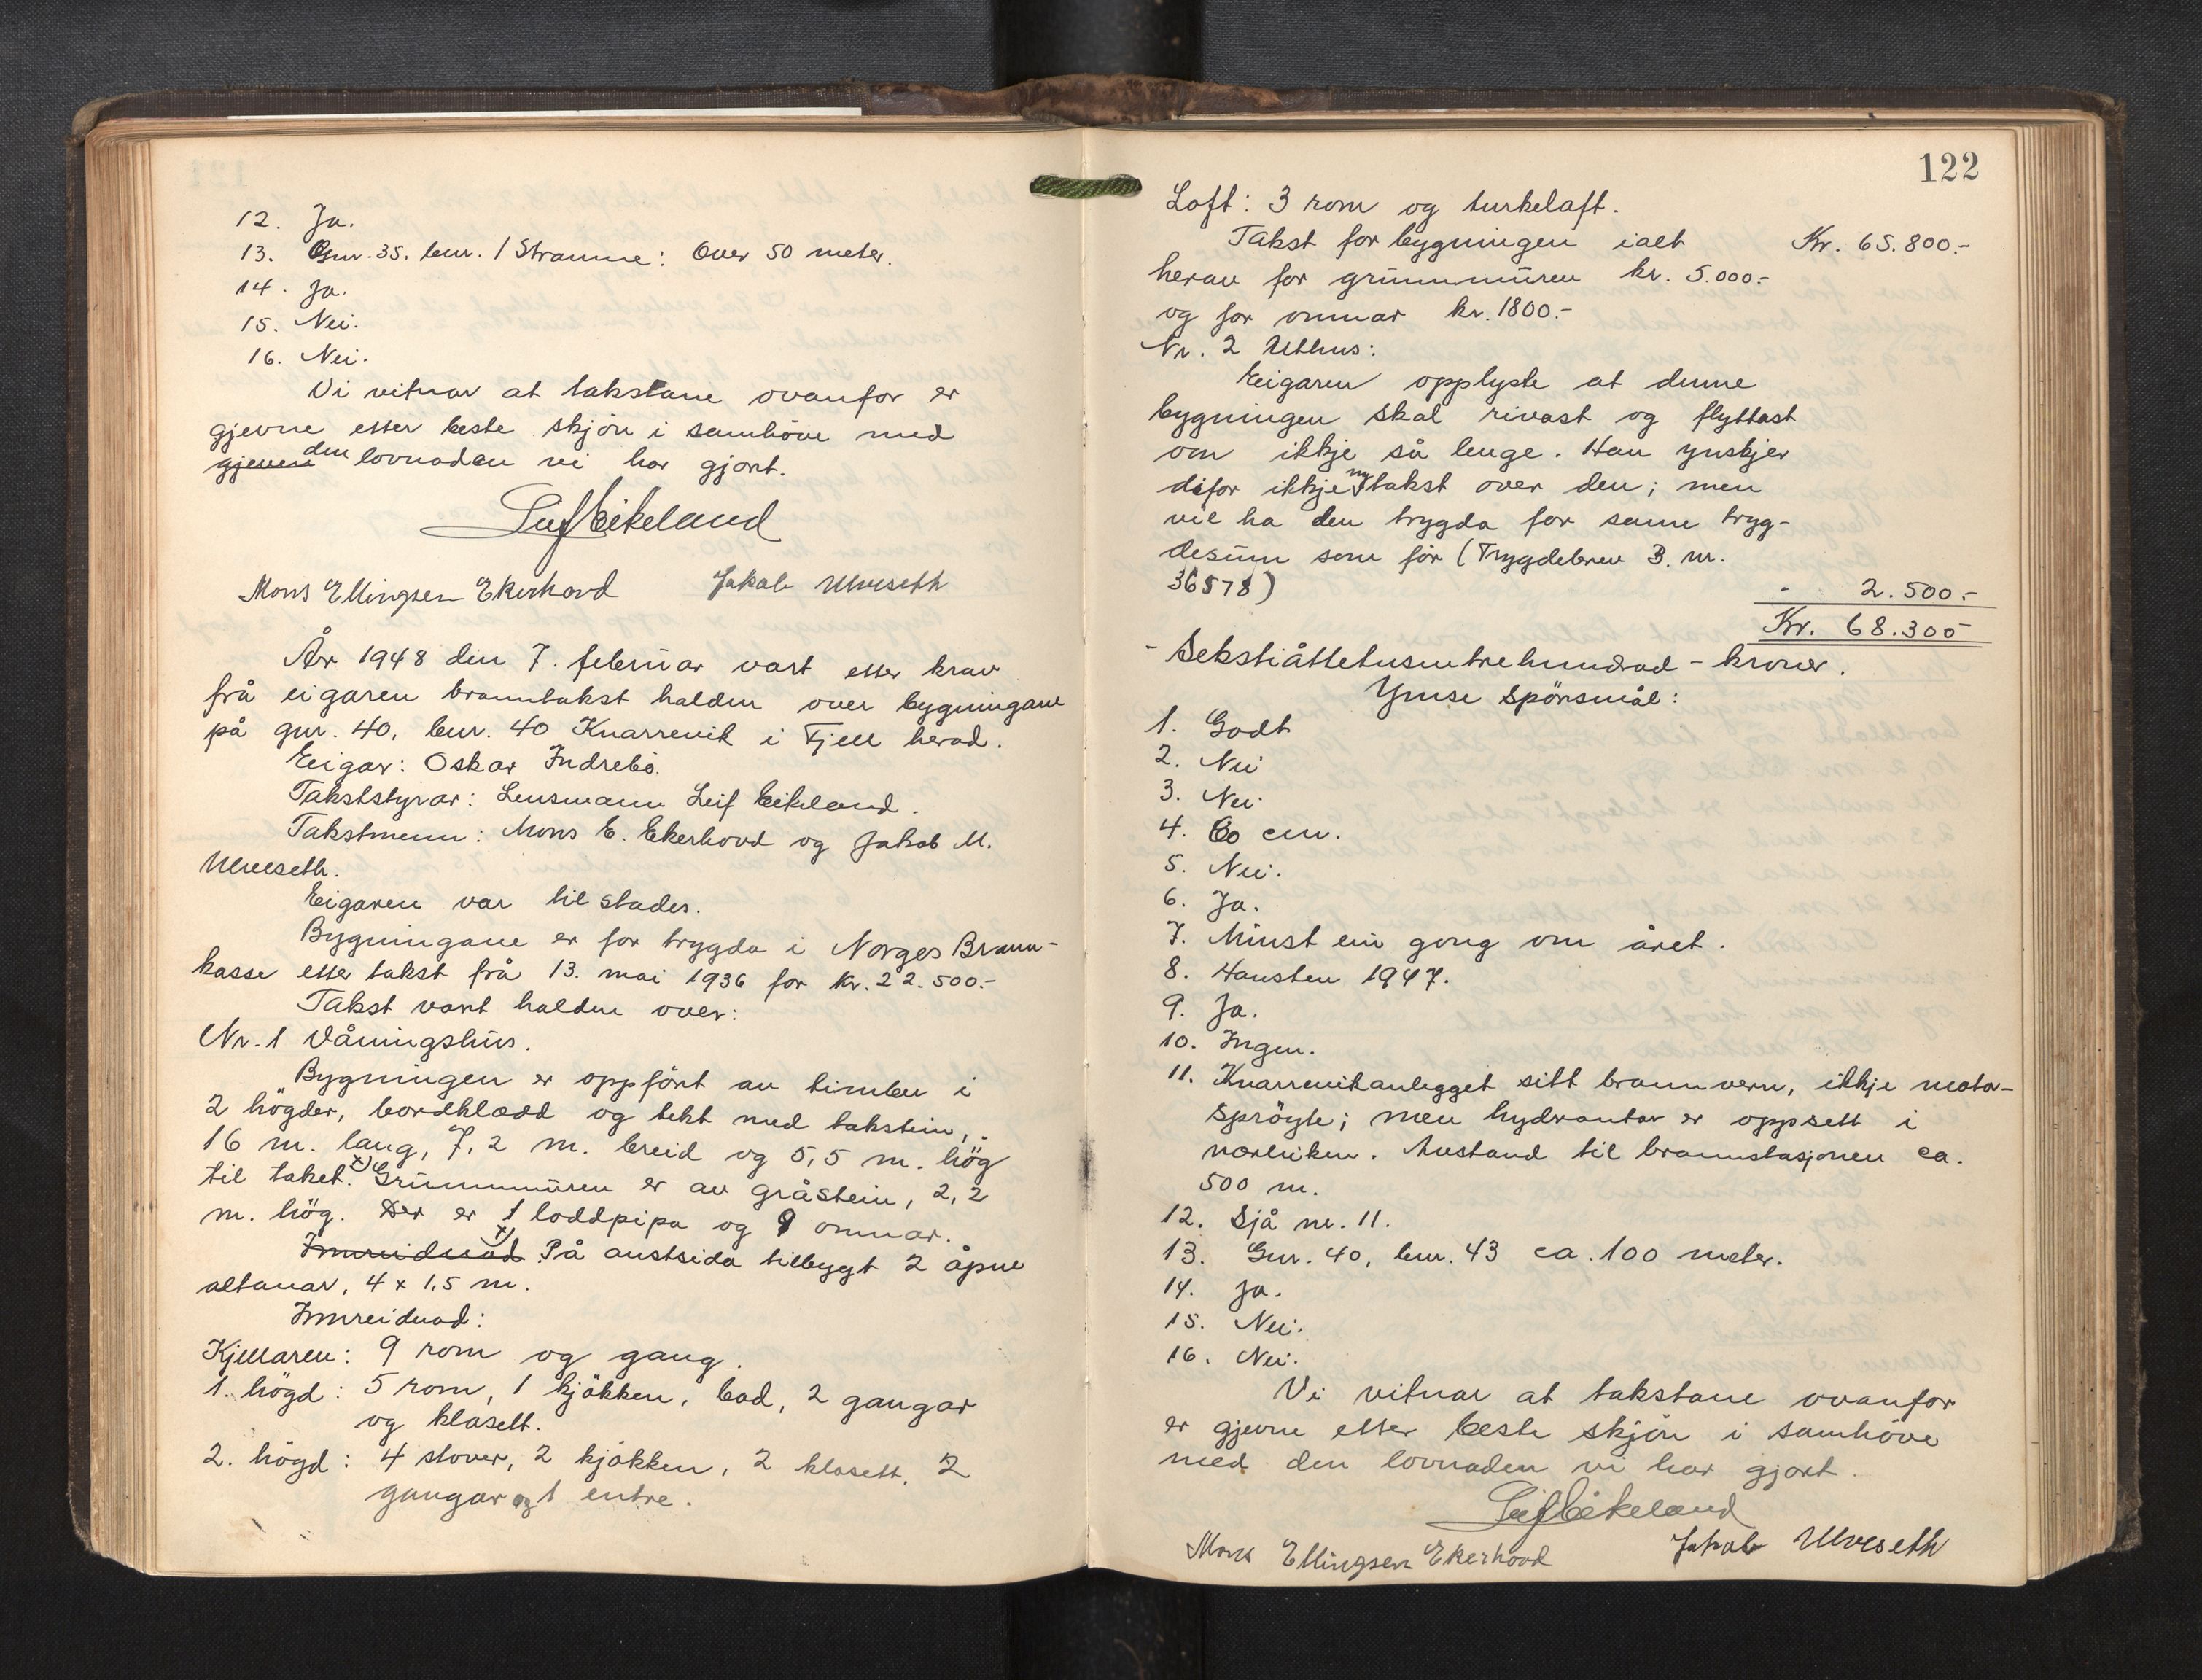 12. Ja.
13. Gnr. 35. bnr. 1 Straume: Over 50 meter.
14. Ja.
15. Nei.
16. Nei.
Vi vitnar at takstane ovanfor er
gjevne etter beste skjön i samhöve med
gjeven den lovnaden vi har gjort.
Leif Eikeland
Mons Ellingsen Ekerhovd Jakob Ulveseth
År 1948 den 7. februar vart etter krav
frå eigaren branntakst halden over bygningane
på gnr. 40, bnr. 40 Knarrevik i Fjell herad.
Eigar: Oskar Indrebö.
Takststyrar: Lensmann Leif Eikeland.
Takstmenn: Mons E. Ekerhovd og Jakob M.
Ulveseth.
Eigaren var til stades.
Bygningane er for trygda i Norges Brann-
kasse etter takst frå 13. mai 1936 for kr. 22.500.-
Takst vart halden over:
Nr. 1 Våningshus.
Bygningen er oppfört av timber i
2 högder, bordklædd og tekt med takstein,
16 m. lang, 7,2 m. breid og 5,5 m. hög
til taket. x) Grunnmuren er av gråstein, 2,2
m. hög. Der er 1 loddpipa og 9 omnar.
Innreidnad. x) På austsida tilbygt 2 åpne
altanar, 4 x 1,5 m.
Innreidnad:
Kjellaren: 9 rom og gang.
1. högd: 5 rom, 1 kjökken, bad, 2 gangar
og klosett.
2. högd: 4 stover, 2 kjökken, 2 klosett, 2
gangar og 1 entre.
122
Loft: 3 rom og turkeloft.
Takst for bygningen ialt Kr. 65.800.-
herav for grunnmuren kr. 5.000.-
og for omnar kr. 1800.-
Nr. 2 Uthus:
Eigaren opplyste at denne
bygningen skal rivast og flyttast
om ikkje så lenge. Han ynskjer
difor ikkje ny takst over den; men
vil ha den trygda for same tryg-
desum som för (Trygdebrev B. nr.
36578) - 2.500.-
Kr. 68.300-
- Sekstiåttetusentrehundrad - kroner.
Ymse Spörsmål:
1. Godt
2. Nei
3. Nei
4. 60 cm.
5. Nei.
6. Ja.
7. Minst ein gong om året.
8. Hausten 1947.
9. Ja.
10. Ingen.
11. Knarrevikanlegget sitt brannvern, ikkje motor-
spröyte; men hydrantar er oppsett i
nærleiken. Avstand til brannstasjonen ca.
500 m.
12. Sjå nr. 11.
13. Gnr. 40, bnr. 43 ca. 100 meter.
14. Ja.
15. Nei.
16. Nei.
Vi vitnar at takstane ovanfor
er gjevne etter beste skjön i samhöve
med den lovnaden vi har gjort.
Leif Eikeland
Mons Ellingsen Ekerhovd Jakob Ulveseth